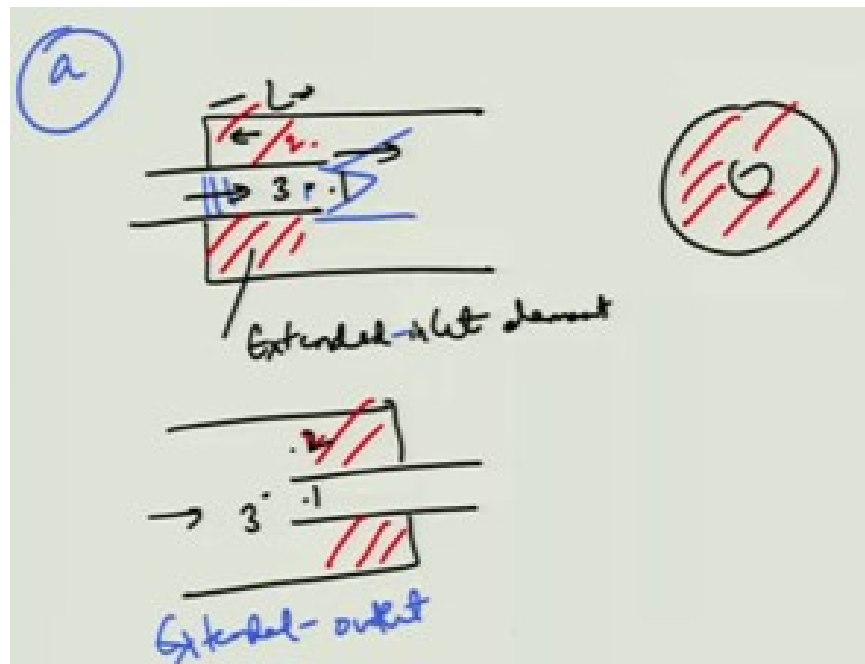 a
L
2.
3 r . 1
Extended-inlet element
.2
3 . 1
Extended-outlet